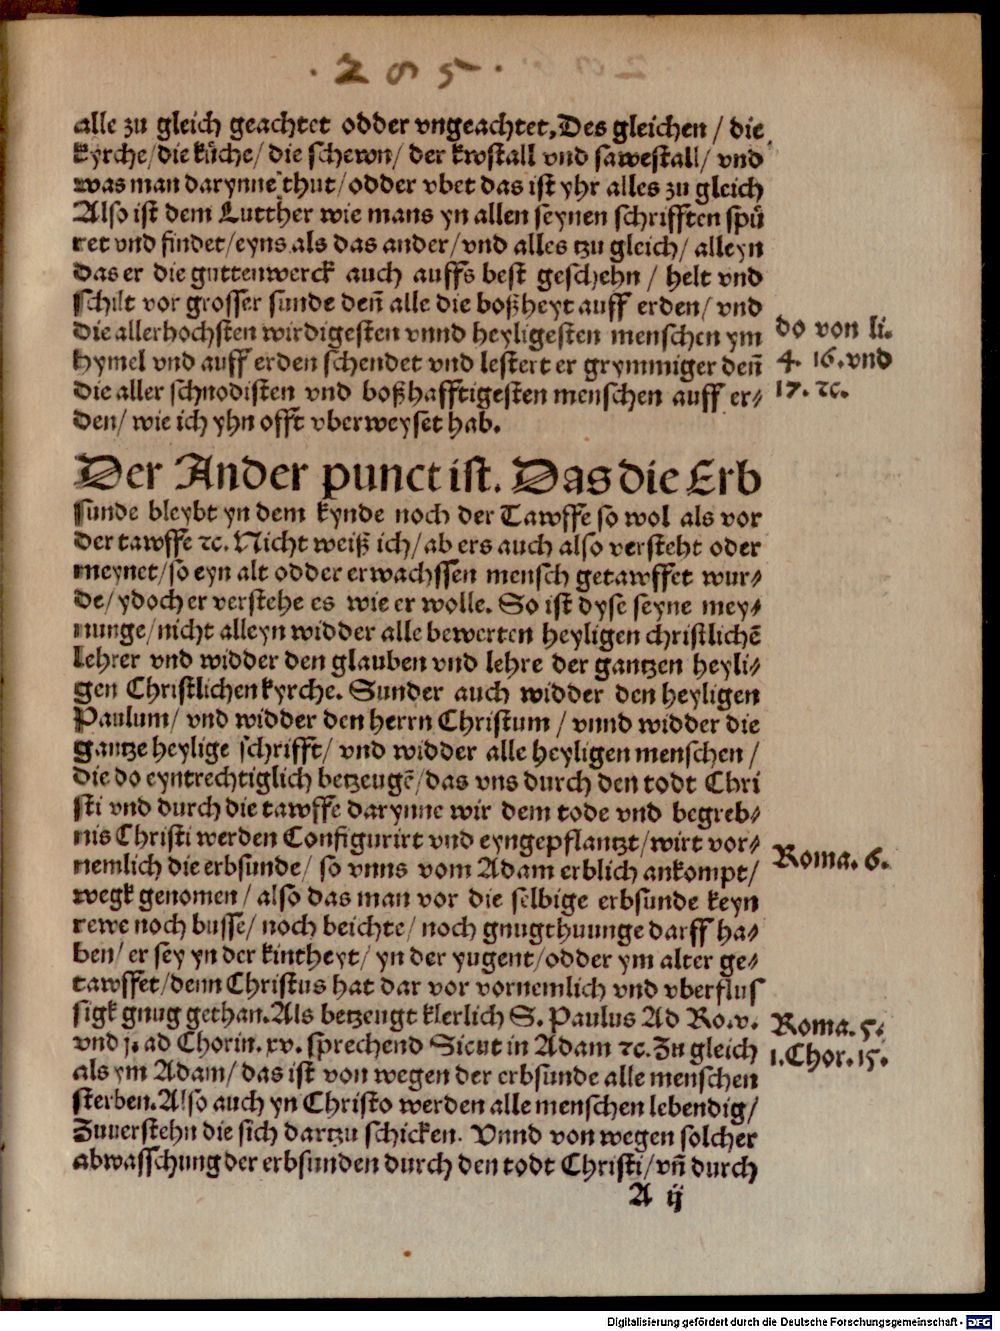 . 205 .
alle zu gleich geachtet odder vngeachtet, Des gleichen / die
kyrche / die kůche / die schewn / der kwstall vnd sawestall / vnd
was man darynne thut / odder vbet das ist yhr alles zu gleich
Also ist dem Lutther wie mans yn allen seynen schrifften spů
ret vnd findet / eyns als das ander / vnd alles tzu gleich / alleyn
das er die guttenwerck auch auffs best geschehn / helt vnd
schilt vor grosser sunde deñ alle die boßheyt auff erden / vnd
die allerhochsten wirdigesten vnnd heyligesten menschen ym
do von li.
hymel vnd auff erden schendet vnd lestert er grymmiger deñ
4. 16. vnd
die aller schnodisten vnd boßhafftigesten menschen auff er⸗
17. ꝛc.
den / wie ich yhn offt vberweyset hab.
Der Ander punct ist. Das die Erb
sunde bleybt yn dem kynde noch der Tawffe so wol als vor
der tawffe ꝛc. Nicht weiß ich / ab ers auch also versteht oder
meynet / so eyn alt odder erwachssen mensch getawffet wur⸗
de / ydoch er verstehe es wie er wolle. So ist dyse seyne mey⸗
nunge / nicht alleyn widder alle bewerten heyligen christlichē
lehrer vnd widder den glauben vnd lehre der gantzen heyli⸗
gen Christlichen kyrche. Sunder auch widder den heyligen
Paulum / vnd widder den herrn Christum / vnnd widder die
gantze heylige schrifft / vnd widder alle heyligen menschen /
die do eyntrechtiglich betzeugē / das vns durch den todt Chri
sti vnd durch die tawffe darynne wir dem tode vnd begreb⸗
nis Christi werden Configurirt vnd eyngepflantzt / wirt vor⸗
nemlich die erbsunde / so vnns vom Adam erblich ankompt /
Roma. 6.
wegk genomen / also das man vor die selbige erbsunde keyn
rewe noch busse / noch beichte / noch gnugthuunge darff ha⸗
ben / er sey yn der kintheyt / yn der yugent / odder ym alter ge⸗
tawffet / denn Christus hat dar vor vornemlich vnd vberflus
sigk gnug gethan. Als betzeugt klerlich S. Paulus Ad Ro. v.
Roma. 5.
vnd j. ad Chorin. xv. sprechend Sicut in Adam ꝛc. Zu gleich
1. Chor. 15.
als ym Adam / das ist von wegen der erbsunde alle menschen
sterben. Also auch yn Christo werden alle menschen lebendig /
Zuuerstehn die sich dartzu schicken. Vnnd von wegen solcher
abwasschung der erbsunden durch den todt Christi / vñ durch
A ij
Digitalisierung gefördert durch die Deutsche Forschungsgemeinschaft - DFG